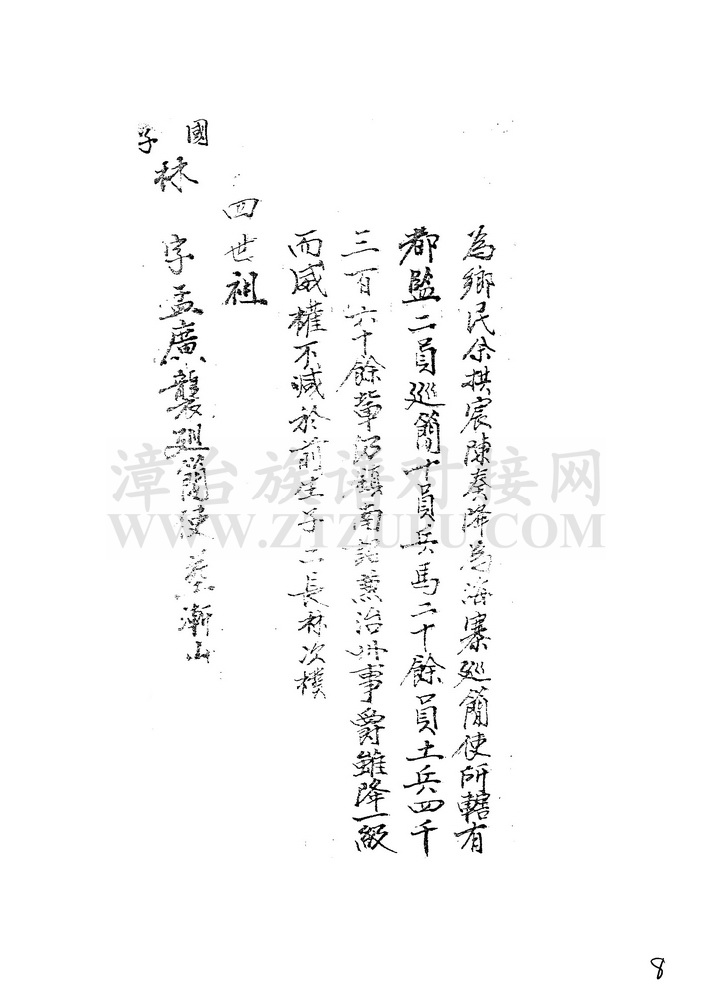 為鄉民余拱宸陳奏降為海寨廵簡使所轄有
都監二員廵簡十員兵馬二十餘員土兵四千
三百六十餘輩仍鎮南詔兼治州事爵雖降一級
而威權不減於前生子二長林次樸
四世祖
國子
林 字孟廣襲廵簡使葬漸山
漳台族谱对接网
WWW.ZTZUPU.COM
8